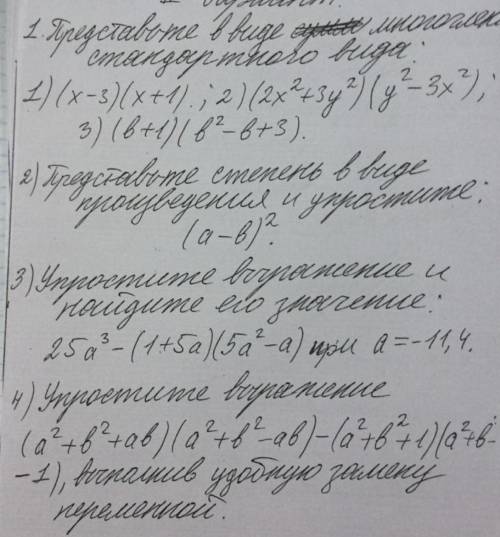 вариант.
1. Представьте в виде многочлена
стандартного вида:
1) (x-3)(x+1).; 2) (2x²+3y²)(y²-3x²);
3) (в+1)(в²-в+3).
2) Представьте степень в виде
произведения и упростите:
(a-в)².
3) Упростите выражение и
найдите его значение:
25a³-(1+5a)(5a²-a) при a=-11,4.
4) Упростите выражение
(a²+в²+aв)(a²+в²-aв)-(a²+в²+1)(a²+в-
-1), выполнив удобную замену
переменной.